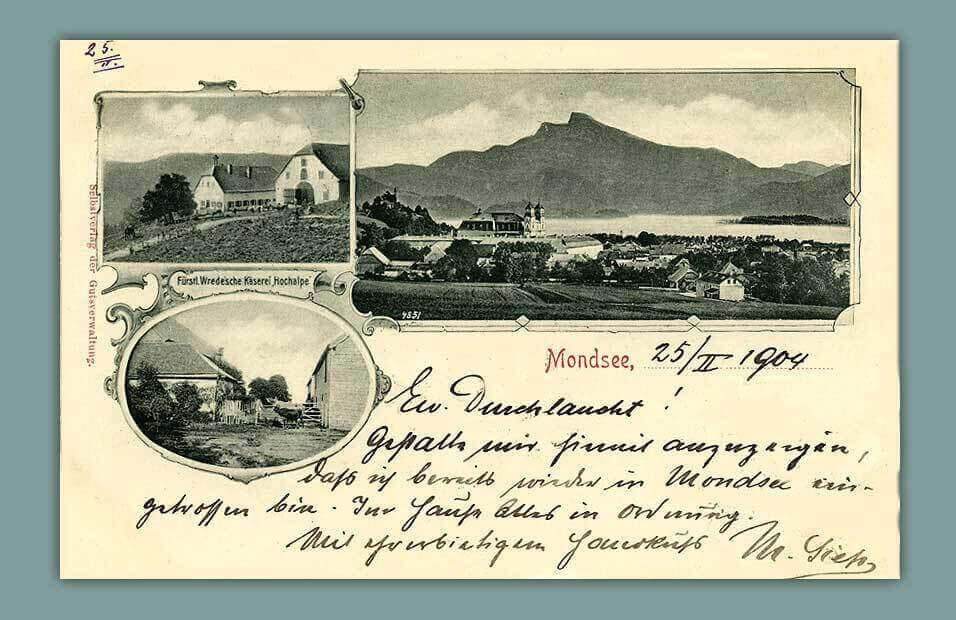 25.
II.
Selbstverlag der Gutsverwaltung.
Fürstl. Wrede'sche Käserei Hochalpe
4851
Mondsee, 25/II 1904
Ew. Durchlaucht!
Gestatte mir hiemit anzuzeigen,
daß ich bereits wieder in Mondsee ein-
getroffen bin. Im Hause Alles in Ordnung.
Mit ehrerbietigem Handkuß